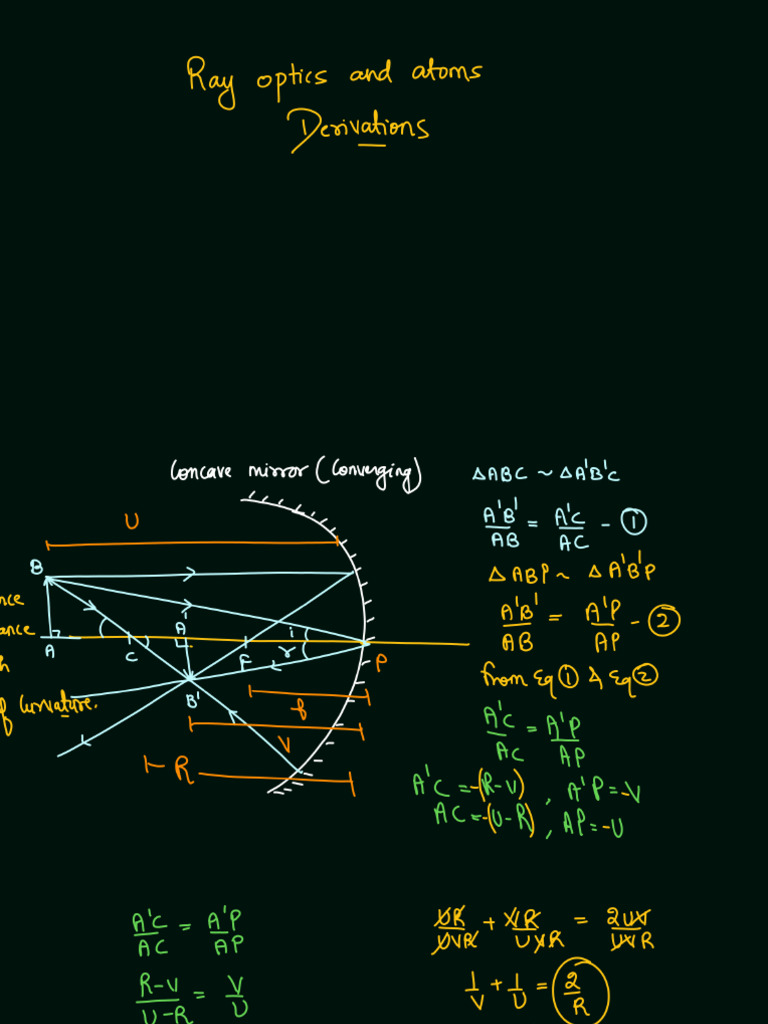 Ray optics and atoms
Derivations
Concave mirror (Converging)
U
B
A
C
A'
F
i
r
P
B'
f
V
R
of curvature.
△ABC ~ △A'B'C
A'B'/AB = A'C/AC - ①
△ABP ~ △A'B'P
A'B'/AB = A'P/AP - ②
from Eq ① & Eq ②
A'C/AC = A'P/AP
A'C = -(R-V), A'P = -V
AC = -(U-R), AP = -U
A'C/AC = A'P/AP
R-V/U-R = V/U
UR/UVR + VR/UVR = 2UV/UVR
1/V + 1/U = 2/R